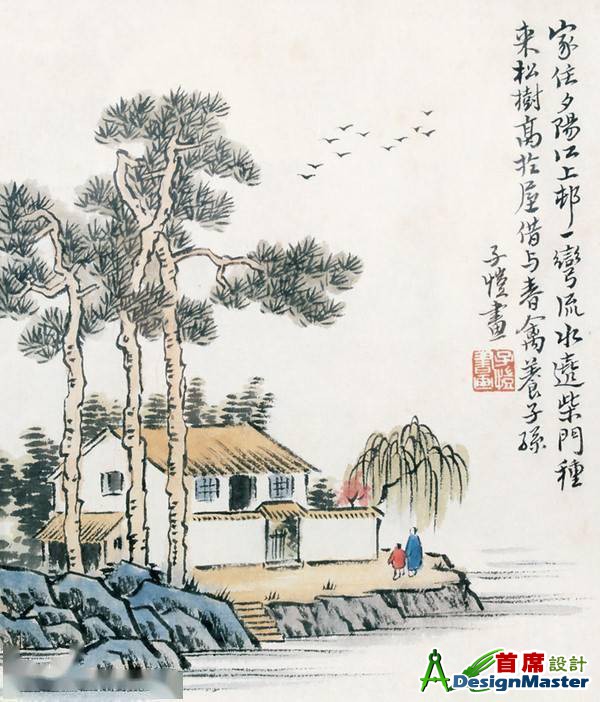 家住夕陽江上邨一彎流水遶柴門種
來松樹高於屋借与春禽養子孫
子愷畫
子愷書画
首席設計
DesignMaster